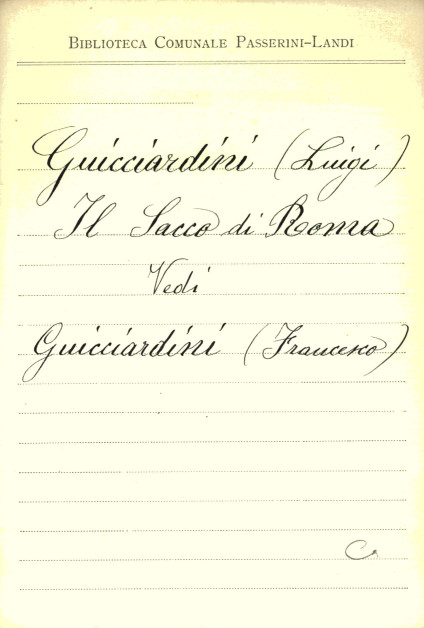 BIBLIOTECA COMUNALE PASSERINI-LANDI
Guicciardini (Luigi)
Il Sacco di Roma
Vedi
Guicciardini (Francesco)